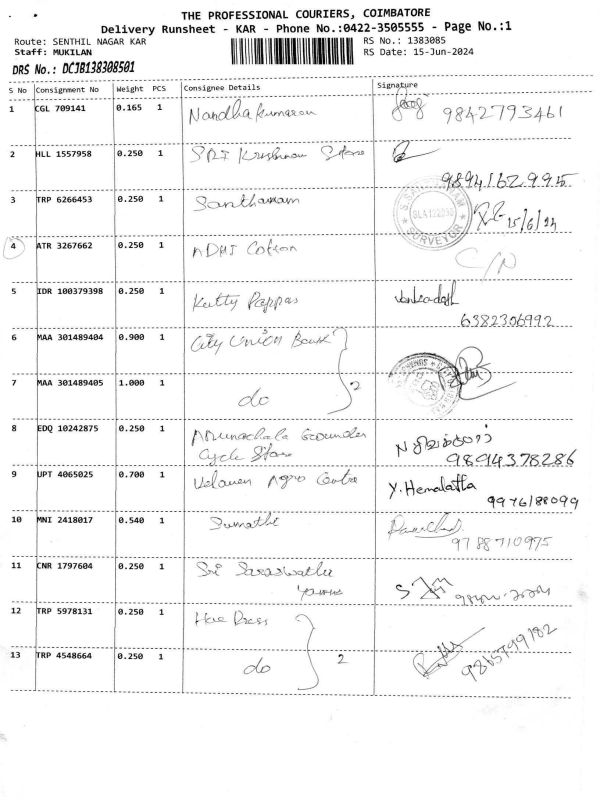 THE PROFESSIONAL COURIERS, COIMBATORE
Delivery Runsheet - KAR - Phone No.:0422-3505555 - Page No.:1
Route: SENTHIL NAGAR KAR RS No.: 1383085
Staff: MUKILAN RS Date: 15-Jun-2024
DRS No.: DCJB138308501
S No Consignment No Weight PCS Consignee Details Signature
1 CGL 709141 0.165 1 Nandhakumaran 9842793461
2 HLL 1557958 0.250 1 SRI Krishnan Store
9894162995
3 TRP 6266453 0.250 1 Santhanam 15/6/24
SURVEYOR
4 ATR 3267662 0.250 1 ADHI Cotton C/N
5 IDR 100379398 0.250 1 Kutty Pappas
6382306992
6 MAA 301489404 0.900 1 City Union Bank
7 MAA 301489405 1.000 1 do 2
8 EDQ 10242875 0.250 1 Arunachala Gounder
Cycle Store 9894378286
9 UPT 4065025 0.700 1 Velaven Agro Centre Y. Hemalatha
9976188099
10 MNI 2418017 0.540 1 Sumathi
9788710975
11 CNR 1797604 0.250 1 Sri Saraswathi
12 TRP 5978131 0.250 1
13 TRP 4548664 0.250 1 do 2 9865799182